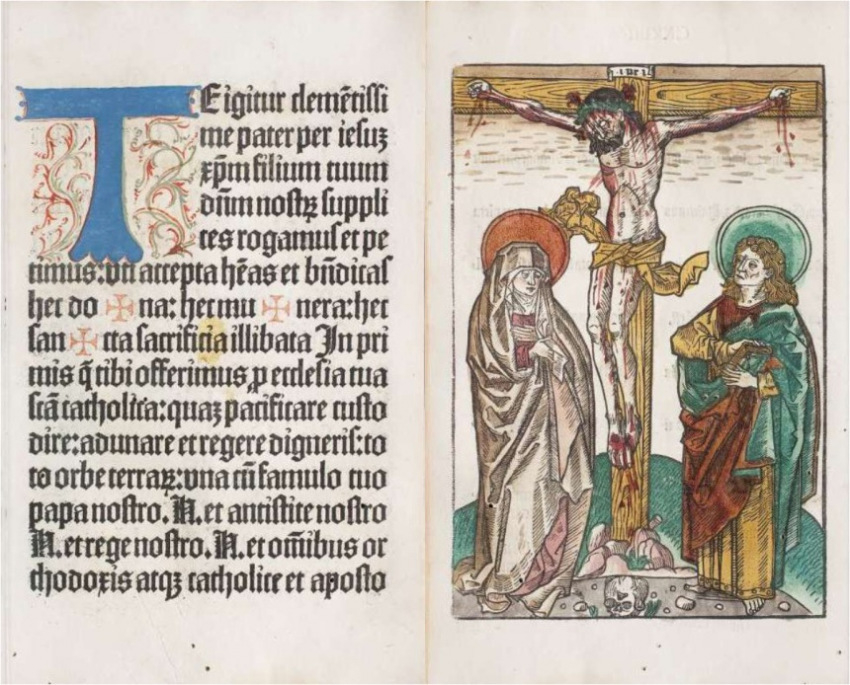 TEigitur clemētissi
me pater per iesuȝ
xp̄m filium tuum
dn̄m nostrꝫ suppli
ces rogamus et pe
timus: vti accepta hēas et bn̄dicas
hec do ✠ na: hec mu ✠ nera: hec
san ✠ cta sacrificia illibata In pri
mis q̄ tibi offerimus ꝓ ecclesia tua
scā catholica: quaȝ pacificare custo
dire: adunare et regere digneris: to
to orbe terraꝝ: vna cū famulo tuo
papa nostro. N. et antistite nostro
N. et rege nostro. N. et om̄ibus or
thodoxis atqꝫ catholice et aposto
I N R I